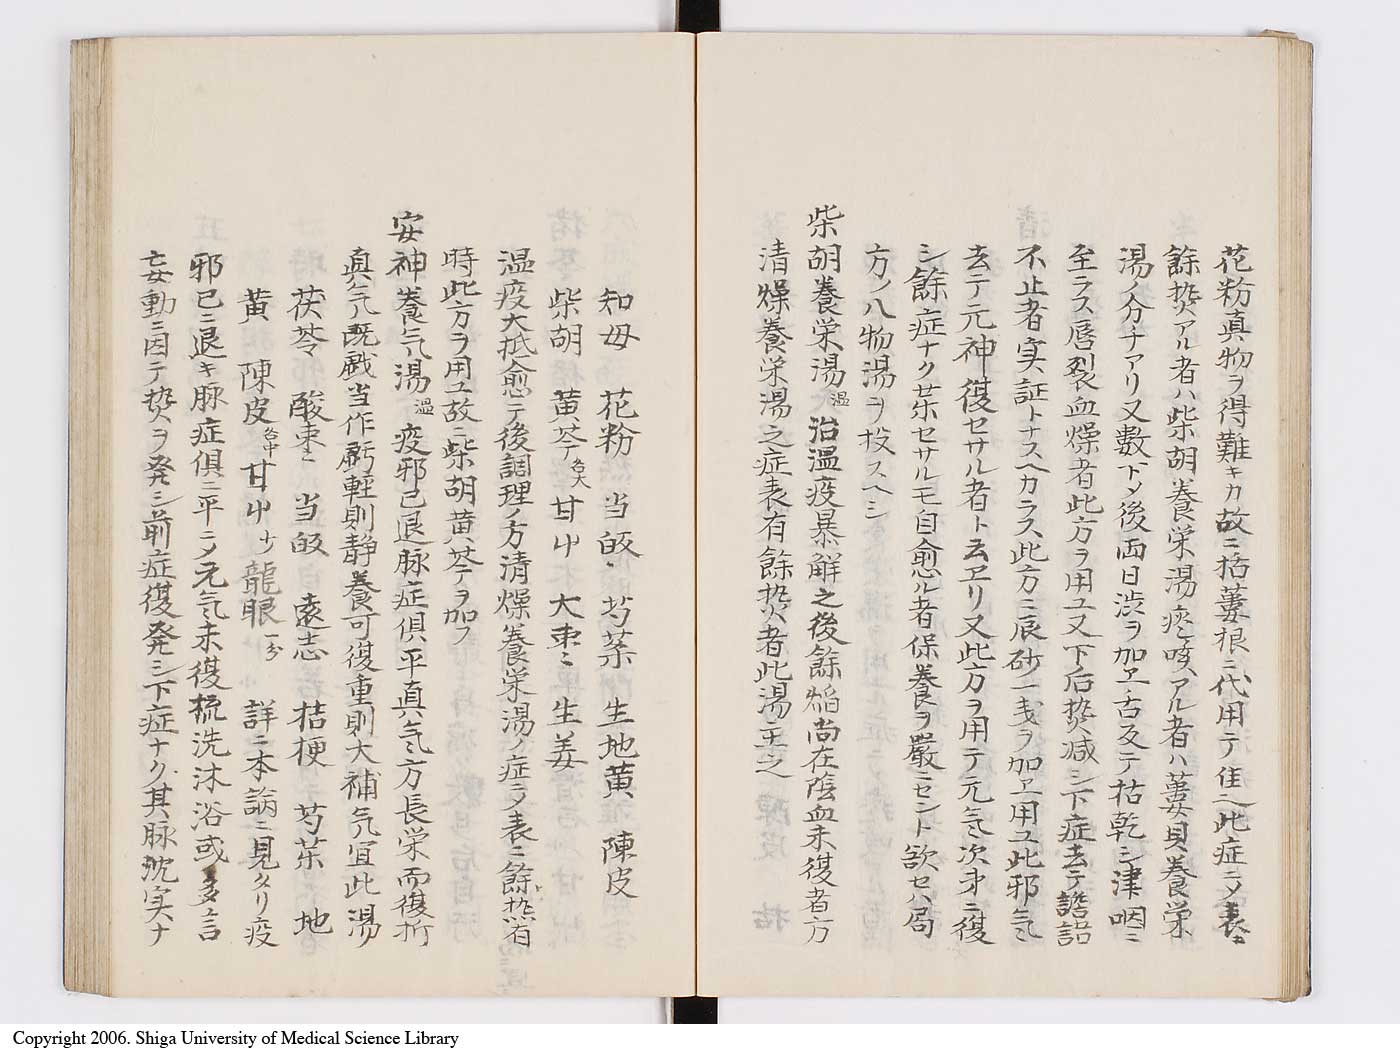 花粉真物ヲ得難キカ故ニ栝蔞根ニ代用テ佳ヘ此症ニメ表ニ
餘𤍠アル者ハ柴胡養栄湯痰咳アル者ハ蔞貝養栄
湯ノ分チアリ又數下メ後両日渋ヲ加エ舌反テ枯乾シ津咽ニ
至ラス唇裂血燥者此方ヲ用ユ又下后𤍠減シ下症去テ譫語
不止者実証トナスヘカラス此方ニ辰砂一戔ヲ加エ用ユ此邪気
去テ元神復セサル者ト云ヱリ又此方ヲ用テ元気次第ニ復
シ餘症ナク柴セサルモ自愈ル者保養ヲ嚴ニセント欲セハ局
方ノ八物湯ヲ投スヘシ
柴胡養栄湯 温 治温疫暴解之後餘焔尚在陰血未復者方
清燥養栄湯之症表有餘𤍠者此湯主之
知母 花粉 当皈 芍薬 生地黄 陳皮
柴胡 黄芩 各大 甘艸 大枣 生姜
温疫大抵愈テ後調理ノ方清燥養栄湯ノ症ニメ表ニ餘𤍠有
時此方ヲ用ユ故ニ柴胡黄芩ヲ加フ
安神養気湯 温 疫邪已退脉症俱平真気方長栄而復折
真気既戕当作虧軽則静養可復重則大補気宜此湯
茯苓 酸枣 当皈 遠志 桔梗 芍薬 地
黄 陳皮 各中 甘艸 少 龍眼 一分 詳ニ本論ニ見タリ疫
邪已ニ退キ脉症俱ニ平ニメ元気未復梳洗沐浴或多言
妄動ニ因テ𤍠ヲ発シ前症復発シ下症ナク其脉沈実ナ
Copyright 2006. Shiga University of Medical Science Library